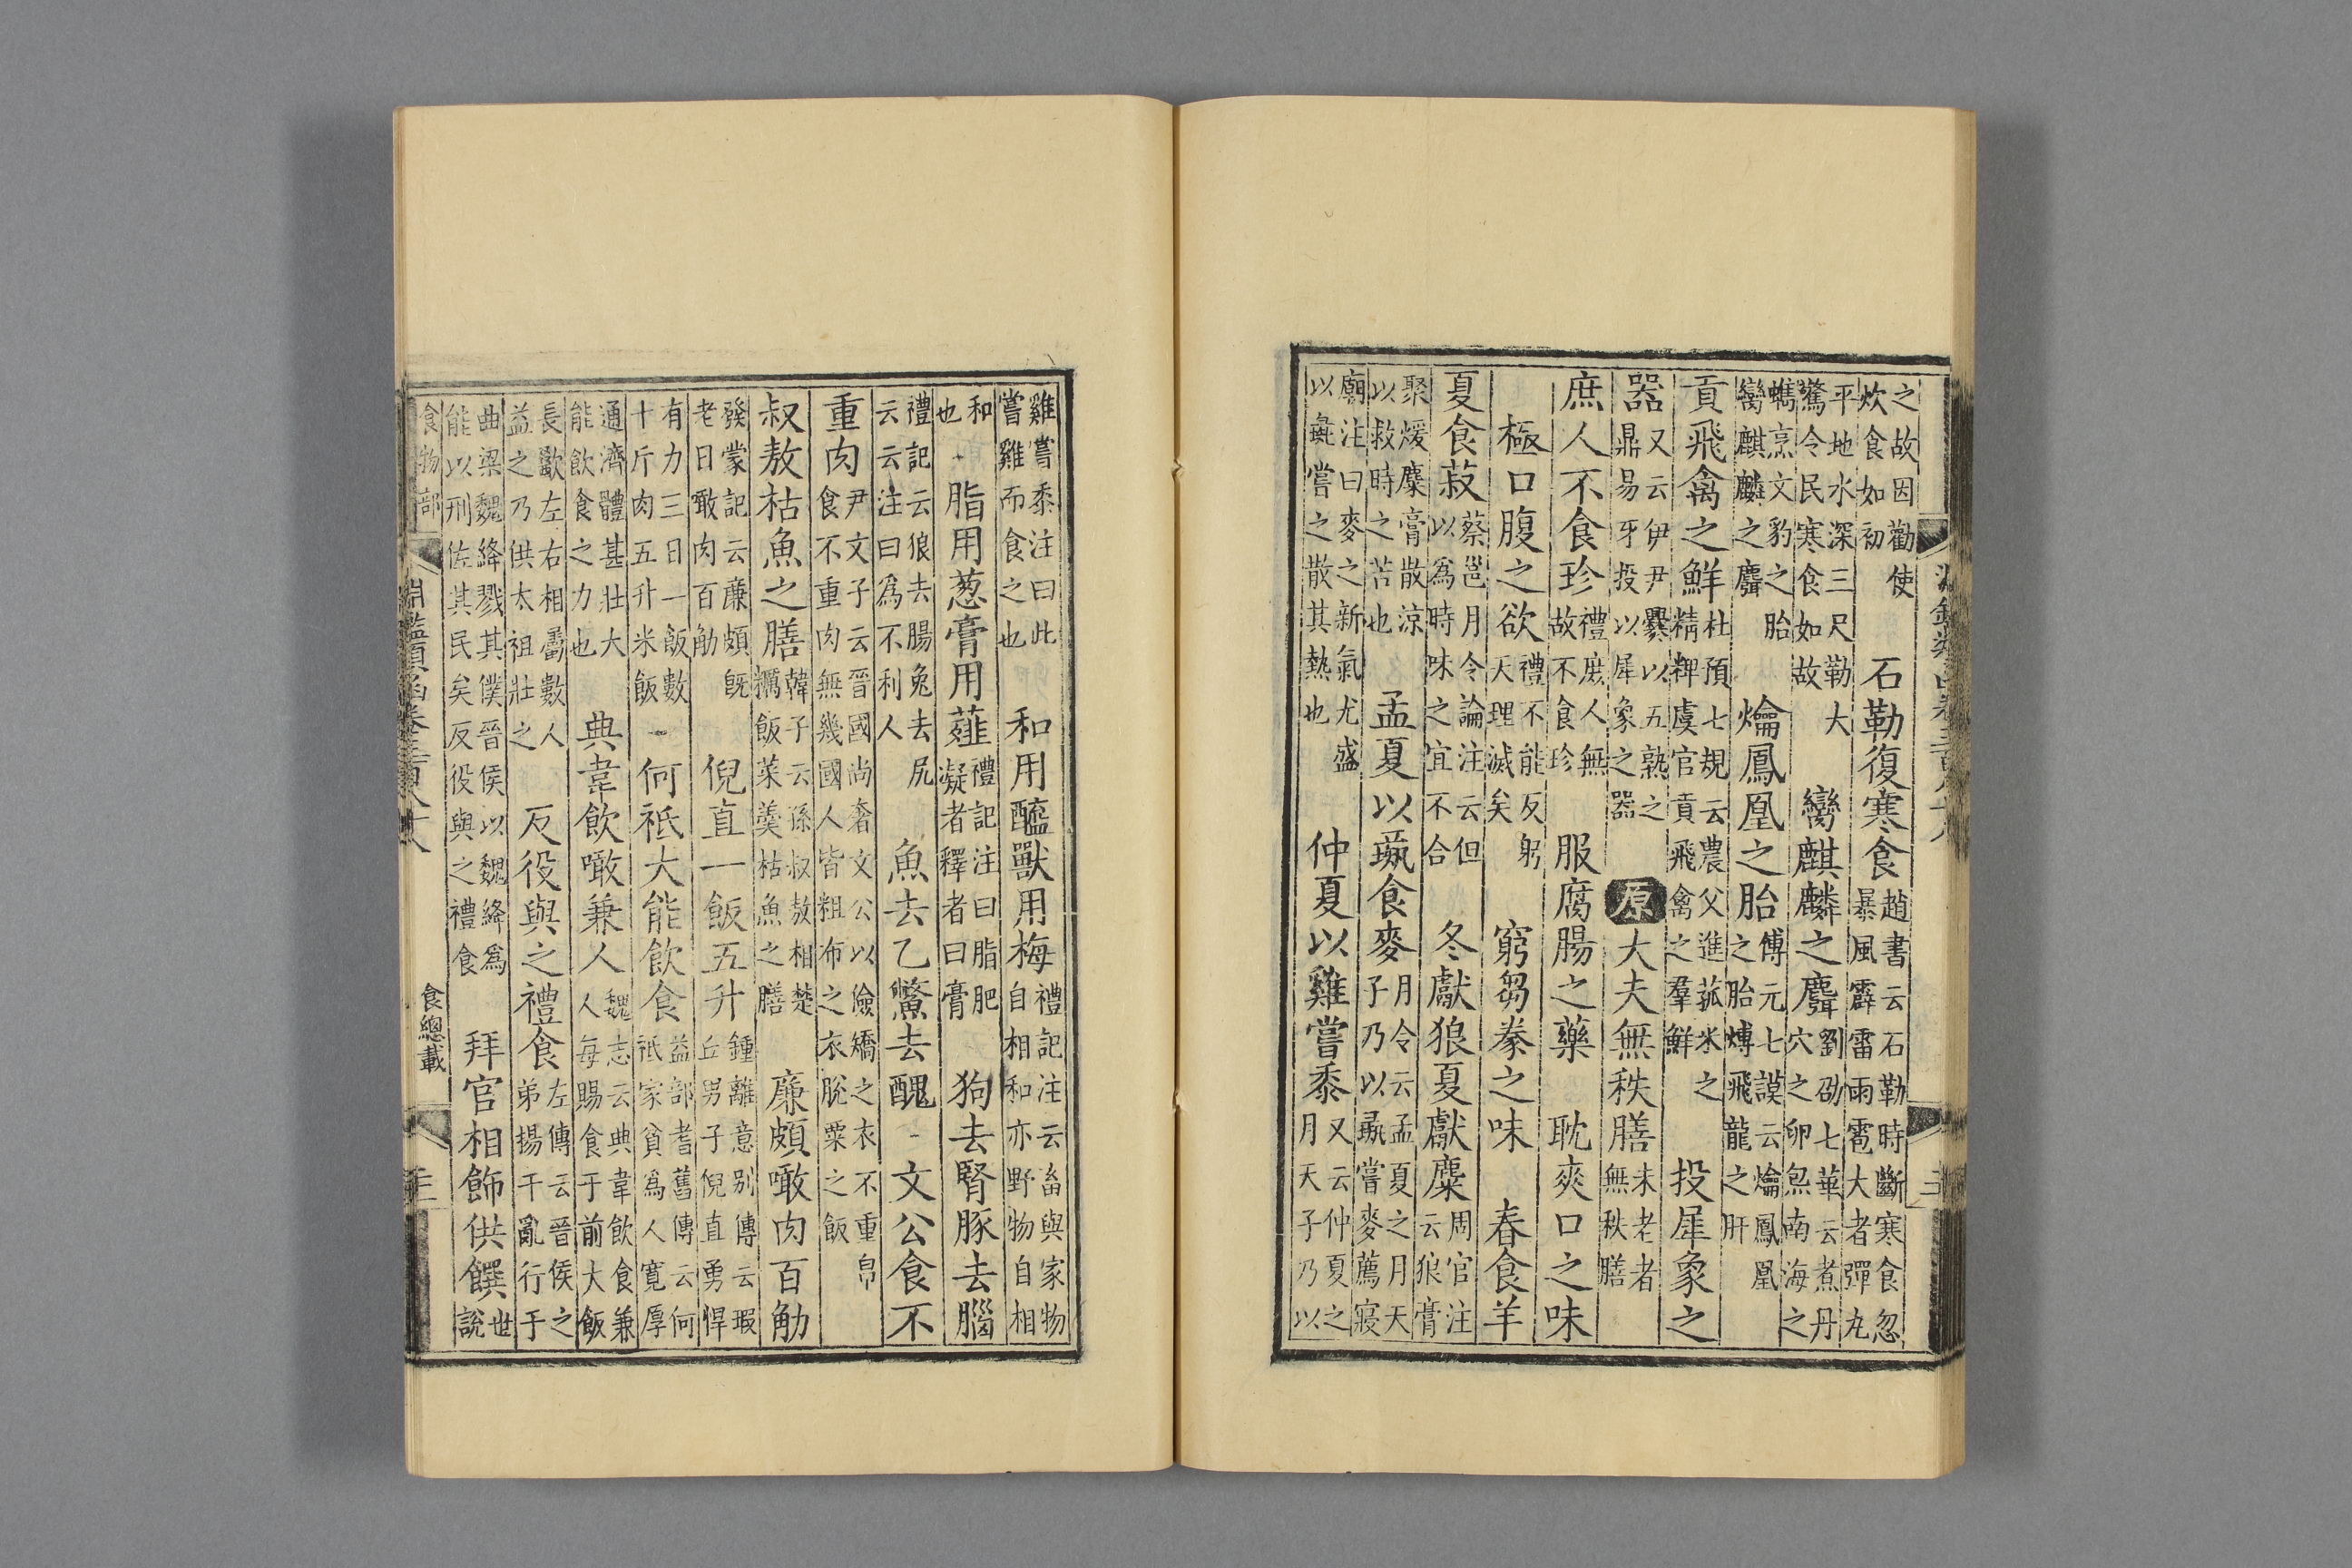 之故因勸使炊食如初　石勒復寒食趙書云石勒時斷寒食忽暴風霹雷雨雹大者彈丸
平地水深三尺勒大驚令民寒食如故　臠麒麟之麛劉劭七華云煮丹穴之卵炰南海之
蠵烹文豹之胎臠麒麟之麛　爚鳳凰之胎傅元七謨云爚鳳凰之胎煿飛龍之肝
貢飛禽之鮮杜預七規云農父進菰米之精粺虞官貢飛禽之羣鮮　投犀象之
器又云伊尹爨以五熟之鼎易牙投以犀象之器　原大夫無秩膳未老者無秩膳
庶人不食珍禮庶人無故不食珍　服腐腸之藥　耽爽口之味
極口腹之欲禮不能反躬天理滅矣　窮芻豢之味　春食羊
夏食菽蔡邕月令論注云但以爲時味之宜不合　冬獻狼夏獻麋周官注云狼膏
聚煖麋膏散涼以救時之苦也　孟夏以彘食麥月令云孟夏之月天子乃以彘嘗麥薦寢
廟注曰麥之新氣尤盛以彘嘗之散其熱也　仲夏以雞嘗黍又云仲夏之月天子乃以
雞嘗黍注曰此嘗雞而食之也　和用醯獸用梅禮記注云畜與家物自相和亦野物自相
和也　脂用葱膏用薤禮記注曰脂肥凝者釋者曰膏　狗去腎豚去腦
禮記云狼去腸兔去尻云云注曰爲不利人　魚去乙鱉去醜　文公食不
重肉尹文子云晉國尚奢文公以儉矯之衣不重帛食不重肉無幾國人皆粗布之衣脫粟之飯
叔敖枯魚之膳韓子云孫叔敖相楚糲飯菜羹枯魚之膳　廉頗噉肉百觔
發蒙記云廉頗旣老日噉肉百觔　倪直一飯五升鍾離意別傳云瑕丘男子倪直勇悍
有力三日一飯數十斤肉五升米飯　何祗大能飲食益部耆舊傳云何祗家貧爲人寬厚
通濟體甚壯大能飲食之力也　典韋飲噉兼人魏志云典韋飲食兼人每賜食于前大飯
長歠左右相屬數人益之乃供太祖壯之　反役與之禮食左傳云晉侯之弟揚干亂行于
曲梁魏絳戮其僕晉侯以魏絳爲能以刑佐其民矣反役與之禮食　拜官相飾供饌世說
食物部
淵鑑類函卷三百八十八　食總載　三